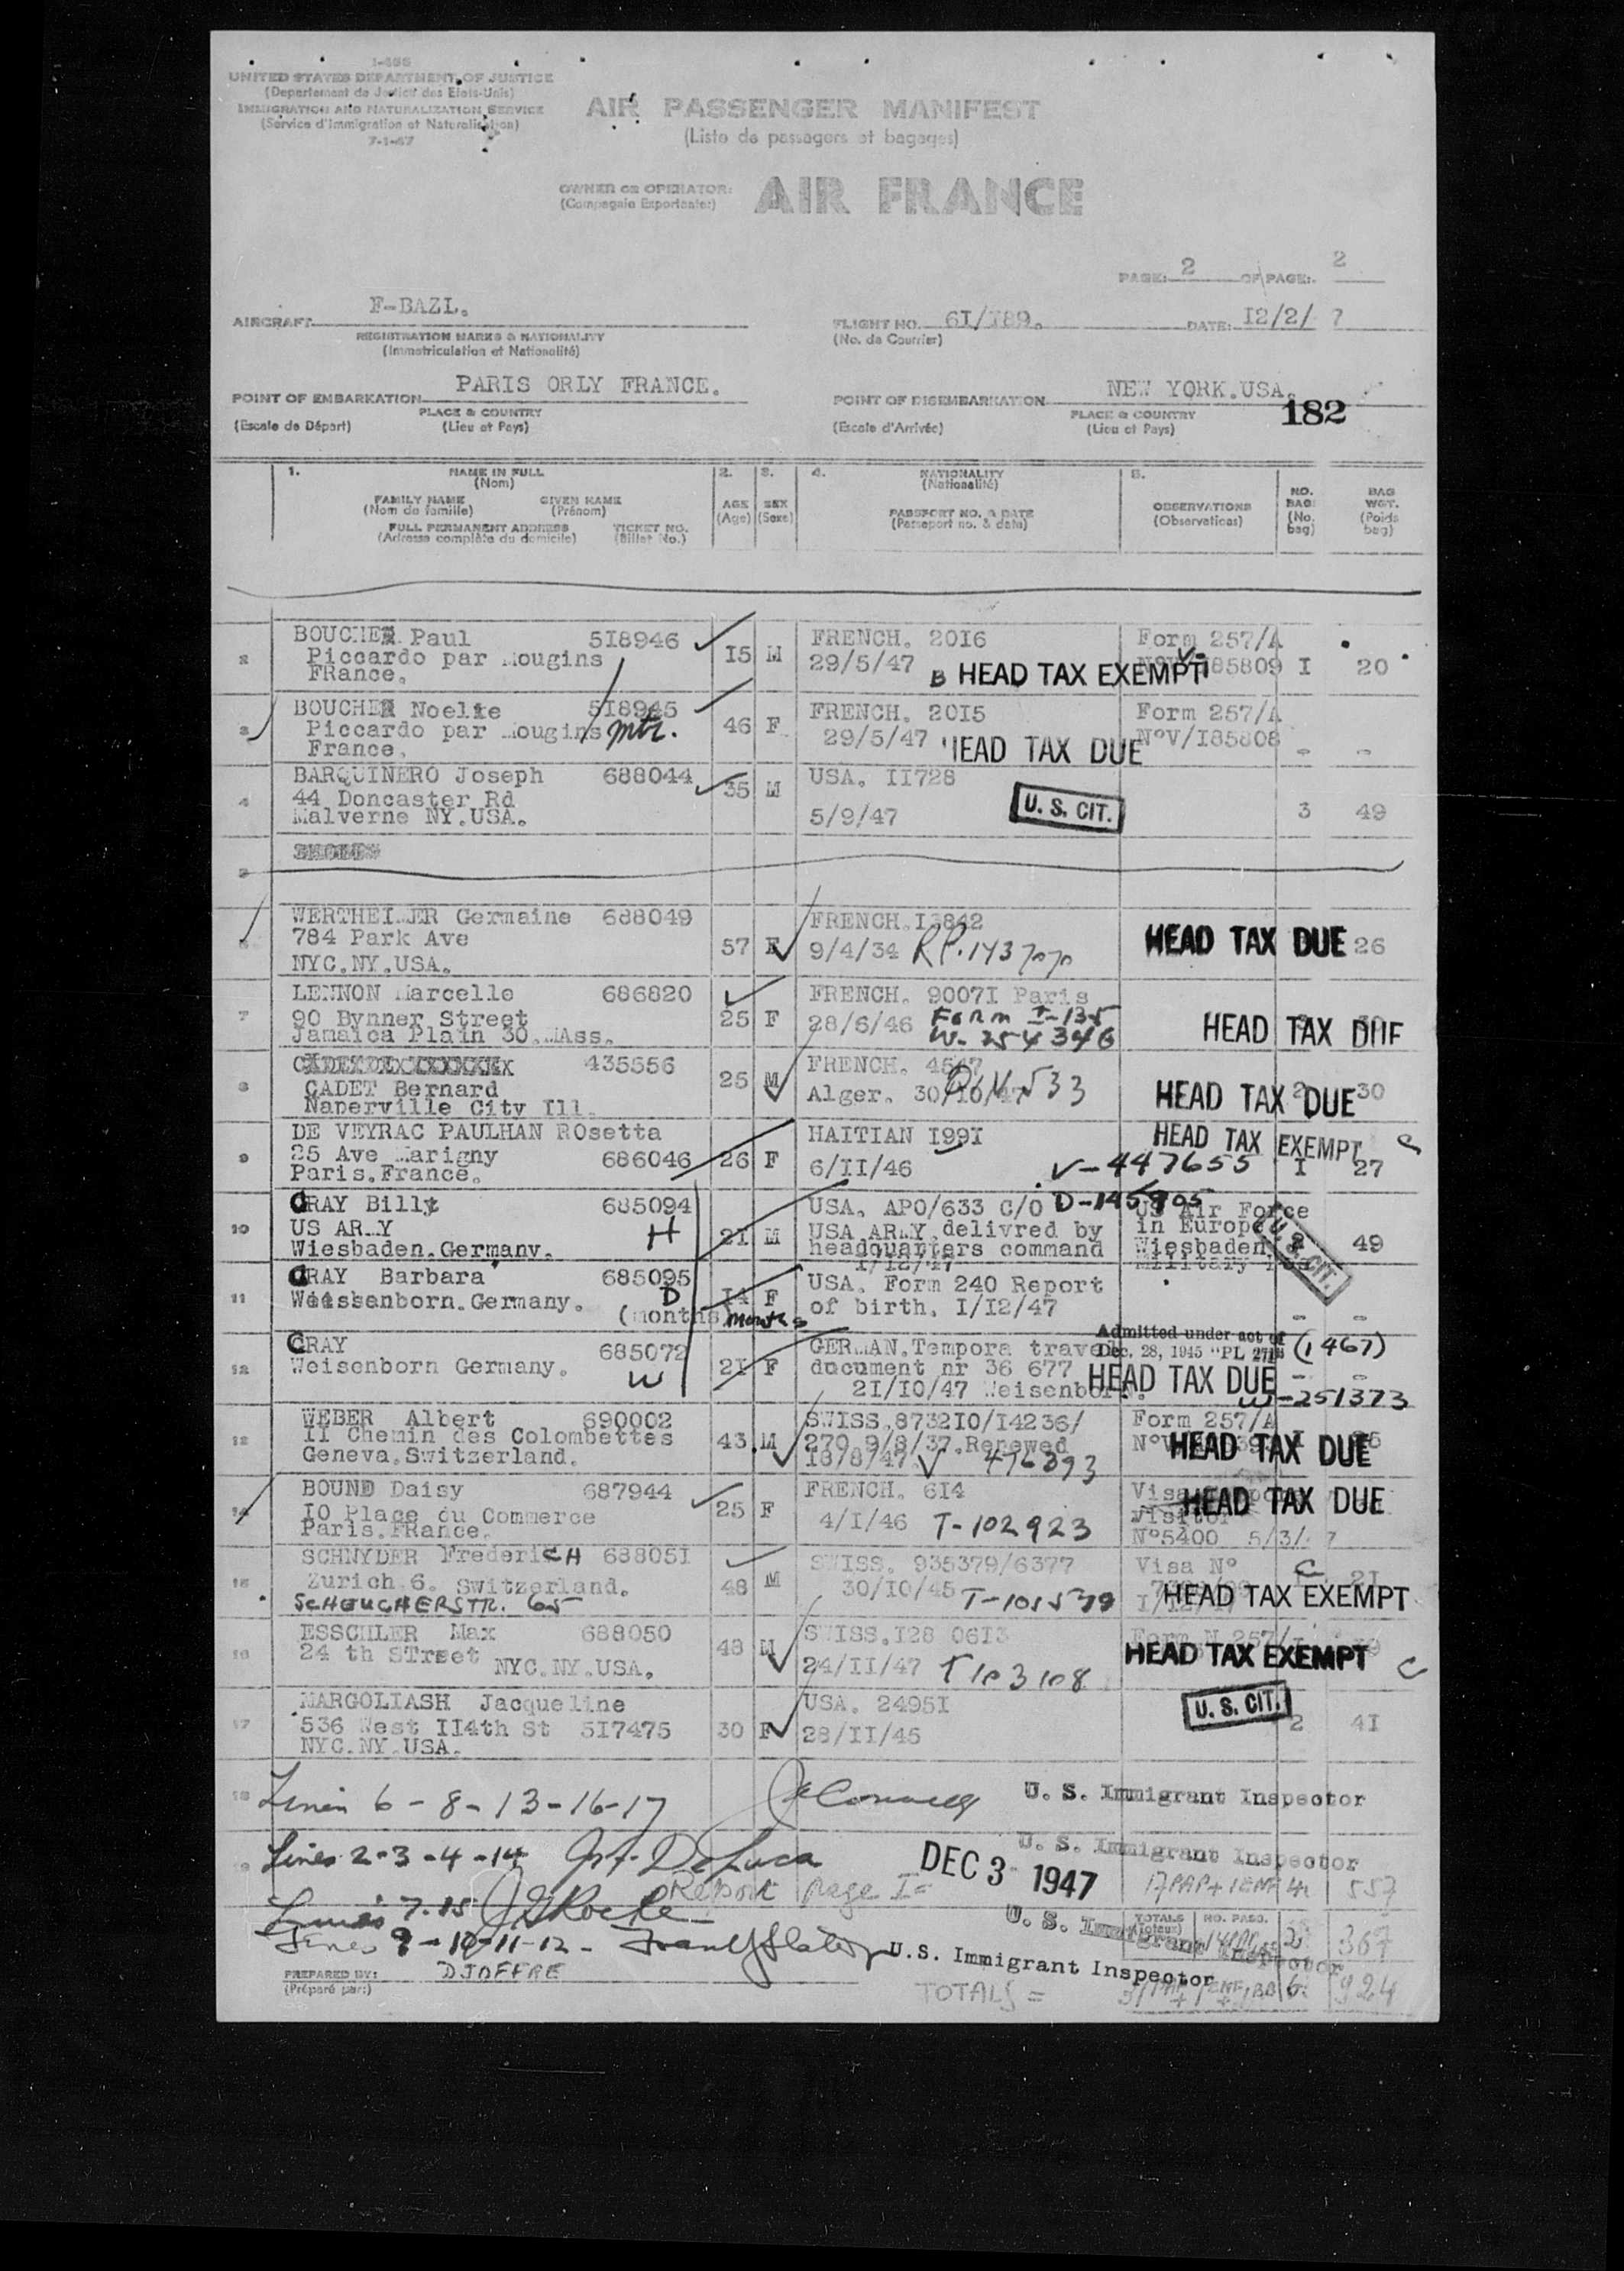 I-466
UNITED STATES DEPARTMENT OF JUSTICE
(Departement de Justice des Etats-Unis)
IMMIGRATION AND NATURALIZATION SERVICE
(Service d'Immigration et Naturalisation)
7-1-47
AIR PASSENGER MANIFEST
(Liste de passagers et bagages)
OWNER OR OPERATOR: AIR FRANCE
(Compagnie Exportante:)
PAGE: 2 OF PAGE: 2
AIRCRAFT F-BAZL.
REGISTRATION MARKS & NATIONALITY
(Immatriculation et Nationalité)
FLIGHT NO. 6I/I89. DATE: I2/2/ 7
(No. de Courrier)
POINT OF EMBARKATION PARIS ORLY FRANCE.
PLACE & COUNTRY
(Escale de Départ) (Lieu et Pays)
POINT OF DISEMBARKATION NEW YORK.USA.
182
PLACE & COUNTRY
(Escale d'Arrivée) (Lieu et Pays)
1. NAME IN FULL (Nom)
FAMILY NAME (Nom de famille) GIVEN NAME (Prénom)
FULL PERMANENT ADDRESS (Adresse complète du domicile) TICKET NO. (Billet No.)
2. AGE (Age)
3. SEX (Sexe)
4. NATIONALITY (Nationalité)
PASSPORT NO. & DATE (Passeport no. & date)
5. OBSERVATIONS (Observations)
NO. BAG. (No. bag)
BAG WGT. (Poids bag)
2 BOUCHER Paul 5I8946 I5 M FRENCH. 20I6 Form 257/A
Piccardo par Mougins 29/5/47 B HEAD TAX EXEMPT I85809 I 20
FRance.
3 BOUCHER Noelie 5I8945 46 F FRENCH. 20I5 Form 257/A
Piccardo par Mougins mtr. 29/5/47 HEAD TAX DUE N°V/I85808 - -
France.
4 BARQUINERO Joseph 688044 35 M USA. II728
44 Doncaster Rd U. S. CIT.
Malverne NY.USA. 5/9/47 3 49
5
6 WERTHEIMER Germaine 688049 57 F FRENCH.I3842
784 Park Ave 9/4/34 HEAD TAX DUE 26
NYC.NY.USA.
7 LENNON Marcelle 686820 25 F FRENCH. 9007I Paris
90 Bynner Street 28/6/46 Form I-135 HEAD TAX DUE
Jamaica Plain 30.MAss. W-254346
8 435556 25 M FRENCH.
CADET Bernard Alger. HEAD TAX DUE 2 30
Naperville City Ill.
9 DE VEYRAC PAULHAN ROsetta HAITIAN I99I HEAD TAX EXEMPT
25 Ave Marigny 686046 26 F V-447655 I 27
Paris.France. 6/II/46
10 GRAY Billy 685094 2I M USA. APO/633 C/O US Air Force
US ARMY H USA ARMY delivred by in Europe 2 49
Wiesbaden.Germany. headquarters command Wiesbaden
I/I2/47 U. S. CIT.
11 GRAY Barbara 685095 I4 F USA. Form 240 Report
Weissenborn.Germany. D of birth. I/I2/47 - -
(months) months
12 GRAY 685072 2I F GERMAN.Tempora travel Admitted under act of Dec. 28, 1945 "PL 271" (1467)
Weisenborn Germany. W document nr 36 677 HEAD TAX DUE - -
2I/I0/47 Weisenborn. W-251373
13 WEBER Albert 690002 43 M SWISS.8732I0/I4236/ Form 257/A
II Chemin des Colombettes 270 9/8/37.Renewed HEAD TAX DUE
Geneva.Switzerland. I8/8/47 V 476393
14 BOUND Daisy 687944 25 F FRENCH. 6I4 HEAD TAX DUE
I0 Place du Commerce 4/I/46 T-102923 Visitor
Paris.FRance. N°5400 5/3/ 7
15 SCHNYDER FrederiCH 68805I 48 M SWISS. 935379/6377 Visa N° C
Zurich 6. Switzerland. 30/I0/45 HEAD TAX EXEMPT 2I
SCHEUCHERSTR. 65
16 ESSCHLER Max 688050 48 M SWISS.I28 06I3
24 th STreet NYC.NY.USA. 24/II/47 T103108 HEAD TAX EXEMPT C
17 MARGOLIASH Jacqueline 30 F USA. 2495I U. S. CIT.
536 West II4th St 5I7475 28/II/45 2 4I
NYC.NY.USA.
18 Lines 6-8-13-16-17 U. S. Immigrant Inspector
19 Lines 2-3-4-14 U. S. Immigrant Inspector
Report page I= DEC 3 1947 557
Lines 7.15 U. S. Immigrant Inspector
TOTALS (Totaux) NO. PASS. 367
Lines 9-10-11-12- U.S. Immigrant Inspector
PREPARED BY: DJOFFRE
(Préparé par:)
TOTALS = 924